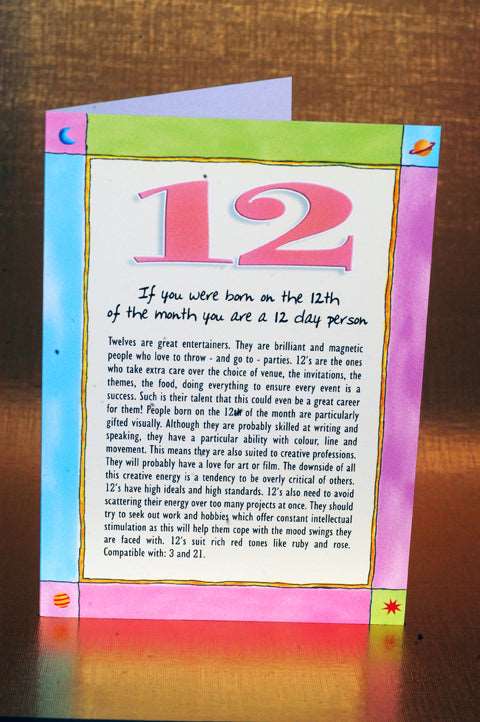 12
If you were born on the 12th
of the month you are a 12 day person
Twelves are great entertainers. They are brilliant and magnetic
people who love to throw - and go to - parties. 12's are the ones
who take extra care over the choice of venue, the invitations, the
themes, the food, doing everything to ensure every event is a
success. Such is their talent that this could even be a great career
for them! People born on the 12th of the month are particularly
gifted visually. Although they are probably skilled at writing and
speaking, they have a particular ability with colour, line and
movement. This means they are also suited to creative professions.
They will probably have a love for art or film. The downside of all
this creative energy is a tendency to be overly critical of others.
12's have high ideals and high standards. 12's also need to avoid
scattering their energy over too many projects at once. They should
try to seek out work and hobbies which offer constant intellectual
stimulation as this will help them cope with the mood swings they
are faced with. 12's suit rich red tones like ruby and rose.
Compatible with: 3 and 21.